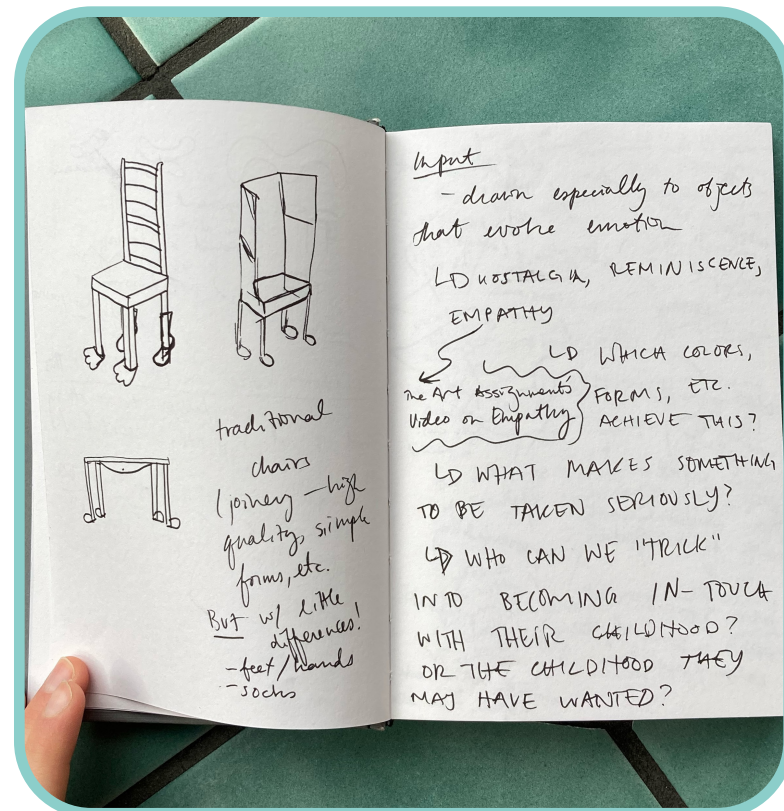 traditional
chairs
(joinery — high
quality, simple
forms, etc.
BUT w/ little
differences!
- feet/hands
- socks
Input
- drawn especially to objects
that evoke emotion
↳ NOSTALGIA, REMINISCENCE,
EMPATHY
↳ WHICH COLORS,
FORMS, ETC.
ACHIEVE THIS?
The Art Assignment's
Video on Empathy
↳ WHAT MAKES SOMETHING
TO BE TAKEN SERIOUSLY?
↳ WHO CAN WE "TRICK"
INTO BECOMING IN-TOUCH
WITH THEIR CHILDHOOD?
OR THE CHILDHOOD THEY
MAY HAVE WANTED?